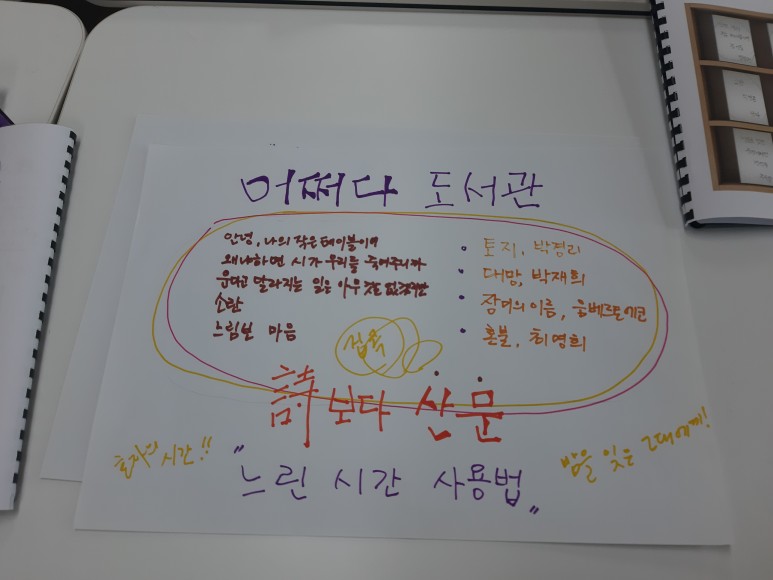 어쩌다 도서관
안녕, 나의 작은 테이블이여
왜냐하면 시가 우리를 죽여주니까
운다고 달라지는 일은 아무것도 없겠지만
소란
느림보 마음
• 토지, 박경리
• 대망, 박재희
• 장미의 이름, 움베르토 에코
• 혼불, 최명희
접속
詩보다 산문
혼자의 시간!!
"느린 시간 사용법"
밤을 잊은 그대에게!